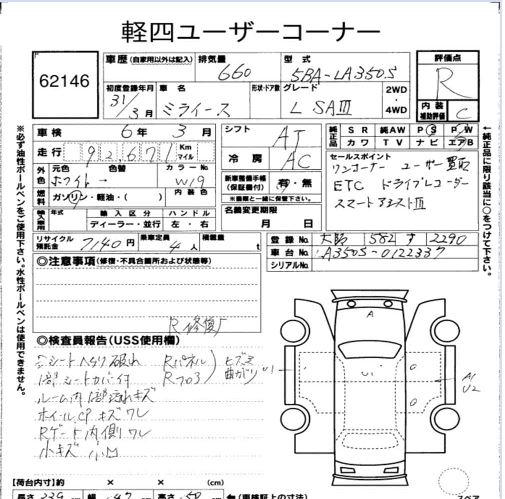 軽四ユーザーコーナー
62146
車歴 (自家用以外は記入)
排気量 660
型式 5BA-LA350S
評価点 R
初度登録年月 31年3月
車名 ミライース
形状・ドア数
グレード L SAⅢ
2WD・4WD
内装補助評価 C
車検 6年3月
シフト AT
純正品 SR 純AW PS PW
カワ TV ナビ エアB
走行 92,671 Km マイル
冷房 AC
外装色 元色 ホワイト 色替 カラーNo. W19 内装色
新車整備手帳(保証書付) 有・無
※書類と一緒に保管下さい。
セールスポイント
ワンオーナー ユーザー買取
ETC ドライブレコーダー
スマートアシストⅢ
燃料 ガソリン・軽油・( )
輸入車用 年式 輸入区分 ディーラー・並行 ハンドル 左・右
名義変更期限 月 日
リサイクル預託金 7140円
乗車定員 4人
積載量 t
登録No. 大阪 582 す 2290
車台No. LA350S-0122337
シリアルNo.
※必ず油性ボールペンをご使用下さい。水性ボールペンは使用できません。
←純正品に限り該当に○をつけて下さい。
◎注意事項(修復・不具合箇所および状態等)
R修復有
◎検査員報告(USS使用欄)
シートヘタリ 破れ
シートカバー付
ルーム内 汚れ キズ
ホイールCP キズ ワレ
Rゲート内側ワレ
小キズ 小凹
Rパネル
Rフロア
ヒズミ
曲がり
U1
A
A1
U2
【荷台内寸】約 × × (cm)
長さ 339 幅 147 高さ 150
(車検証上の寸法)
スペア